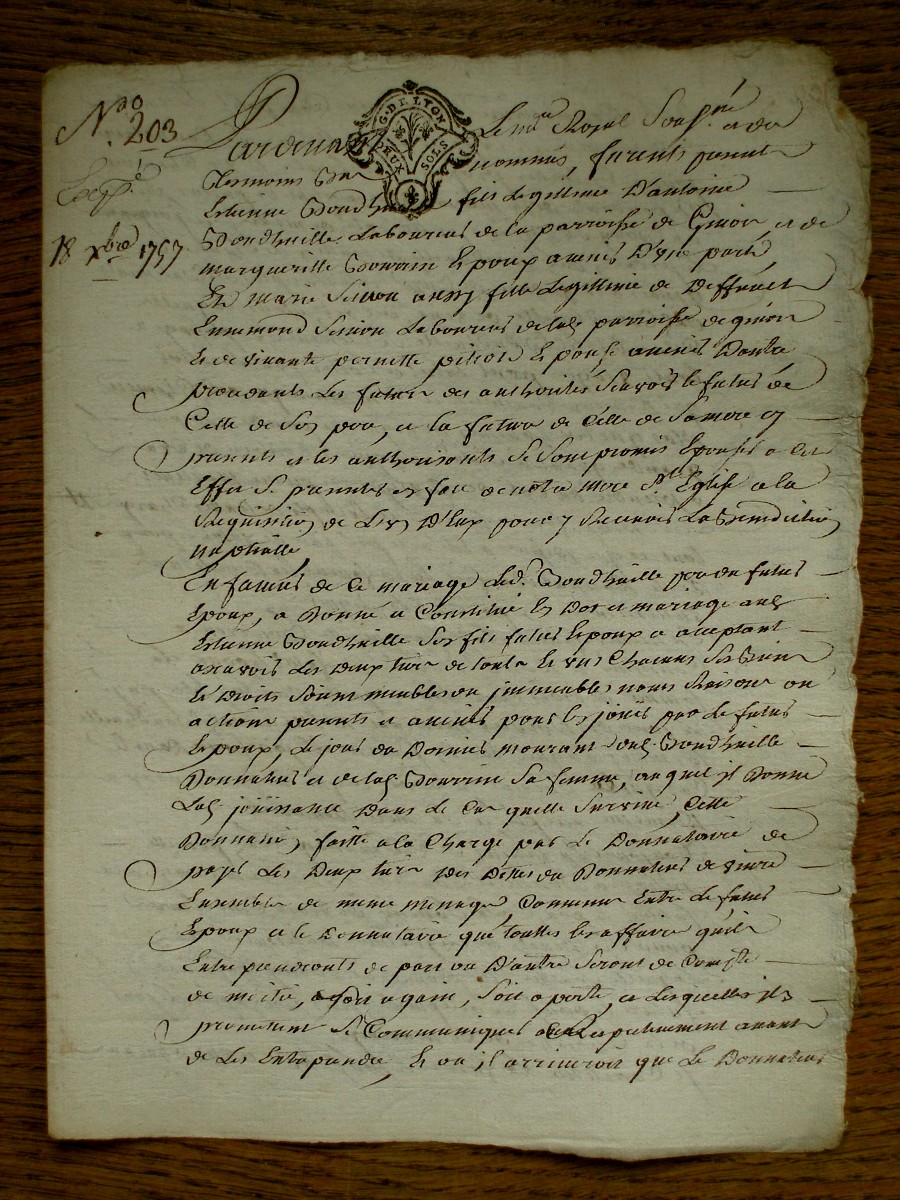 No
203
Exp.é
18 xbre 1757
G. DE LYON
DEUX SOLS
Pardevant Le nre Royal Sousné et des
temoins bas nommés, furent presents
Estienne Gondhuille fils Legittime D'antoine
Gondhuille Laboureur de la parroisse de et de
margueritte Gourrin Epoux avenir D'une part
Et marie Simon aussy fille Legittime de Deffunct
Ennemond Simon Laboureur de lad parroisse de
Et de vivante pernette Epouse avenir D'autre
procedants Les futurs des authorités scavoir le futur de
Celle de son pere, et la future de Celle de sa mere cy
presents et les authorisants se sont promis Epouser a cet
Effet se presenter en face de notre mere Ste Eglise a la
Requisition de L'un D'Eux pour y Recevoir La Benediction
nuptialle
En faveur de Ce mariage led. Gondhuille pere du futur
Epoux, a Donné et Constitué En Dot et mariage aud
Estienne Gondhuille son fils futur Epoux et acceptant
ascavoir Les Deux tiers de touts Et uns Chacuns ses Biens
Et Droits Soient meubles ou immeubles noms Raisons ou
actions presents et avenirs pour les jouir par Le futur
Epoux, Le jour du Dernier mourant dud. Gondhuille
Donnateur et de lad Gourrin sa femme, auquel il Donne
Lad jouissance Dans Le Cas quelle survive, Cette
Donnation faitte a la Charge par Le Donnataire de
payer Les Deux tiers Des Dettes du Donnateur de vivre
Ensemble de meme menage Convenu Entre Le futur
Epoux et le Donnataire que touttes les affaires quils
Entreprendronts de part ou D'autre seront de Compte
de moitié, soit a gain, soit a perte, et Lesquelles ils
promettent se Communiquer Respectivement avant
de Les Entreprendre, Et ou il arriveroit que Le Donnateur